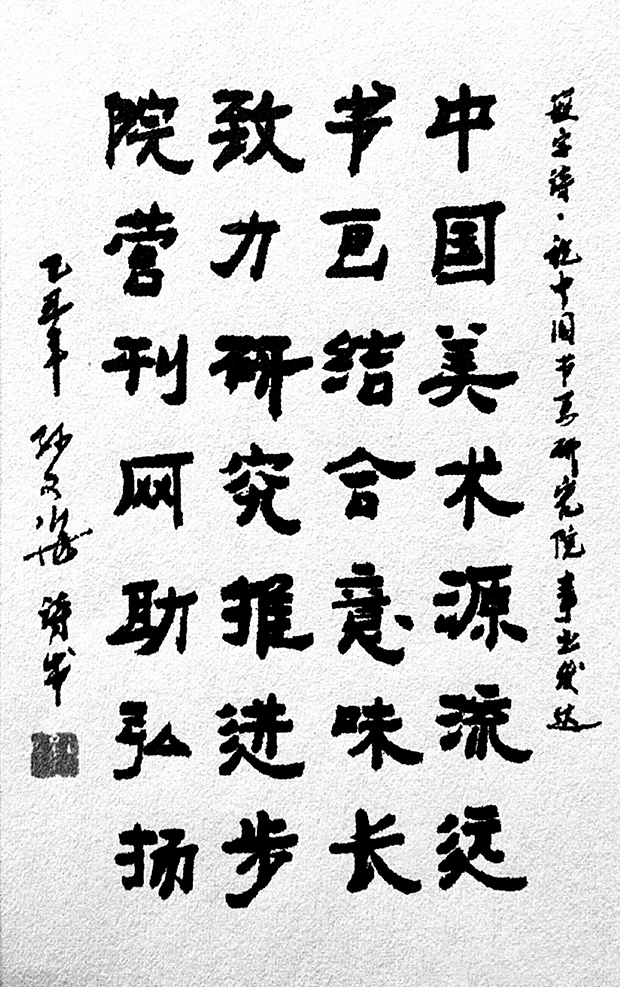 嵌字诗·祝中国书画研究院事业发达
中国美术源流远
书画结合意味长
致力研究推进步
院营刊网助弘扬
年 孙文海